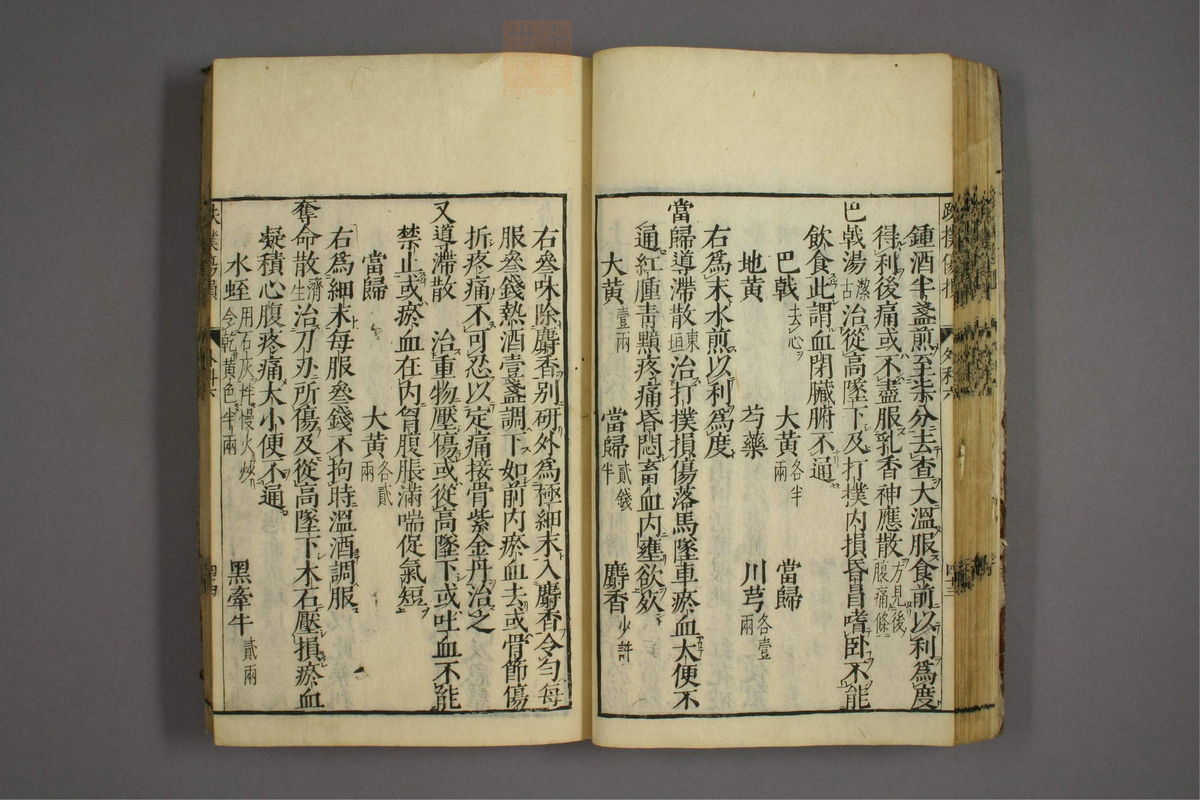 跌撲傷損
外科六
四十三
鍾酒半盞煎至柒分去查大溫服食前以利爲度
得利後痛或不盡服乳香神應散方見後腹痛條
巴戟湯潔古治從高墜下及打撲內損昏冒嗜卧不能
飲食此謂血閉臓腑不通
巴戟去心 大黃各半兩 當歸
地黃 芍藥 川芎各壹兩
右爲末水煎以利爲度
當歸導滯散東垣治打撲損傷落馬墜車瘀血大便不
通紅腫靑黯疼痛昏悶畜血内壅欲死
大黃壹兩 當歸貳錢半 麝香少許
右叄味除麝香別硏外爲極細末入麝香令勻每
服叄錢熱酒壹盞調下如前内瘀血去或骨節傷
折疼痛不可忍以定痛接骨紫金丹治之
又導滯散 治重物壓傷或從高墜下或吐血不能
禁止或瘀血在内胷腹脹滿喘促氣短
當歸 大黃各貳兩
右爲細末每服叄錢不拘時溫酒調服
奪命散濟生治刀刃所傷及從高墜下木石壓損瘀血
凝積心腹疼痛大小便不通
水蛭用石灰拌慢火炒令乾黃色半兩 黑牽牛貳兩
跌撲傷損
外科六
四十四